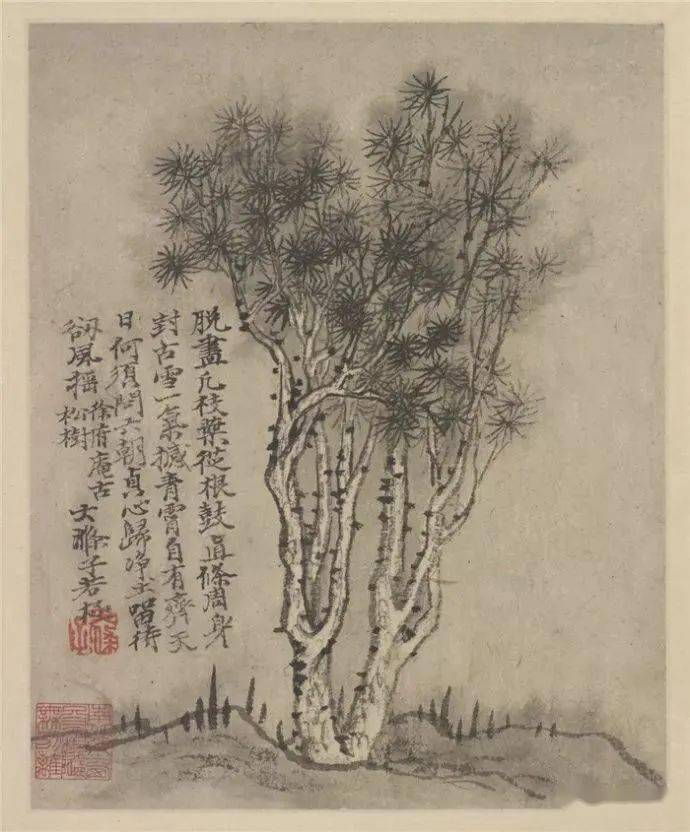 脫盡凡枝葉從根鼓直條周身
封古雪一氣撼青霄自有齊天
日何須問六朝貞心歸淨土留待
刼風搖
徐府庵古
松樹
大滌子若極